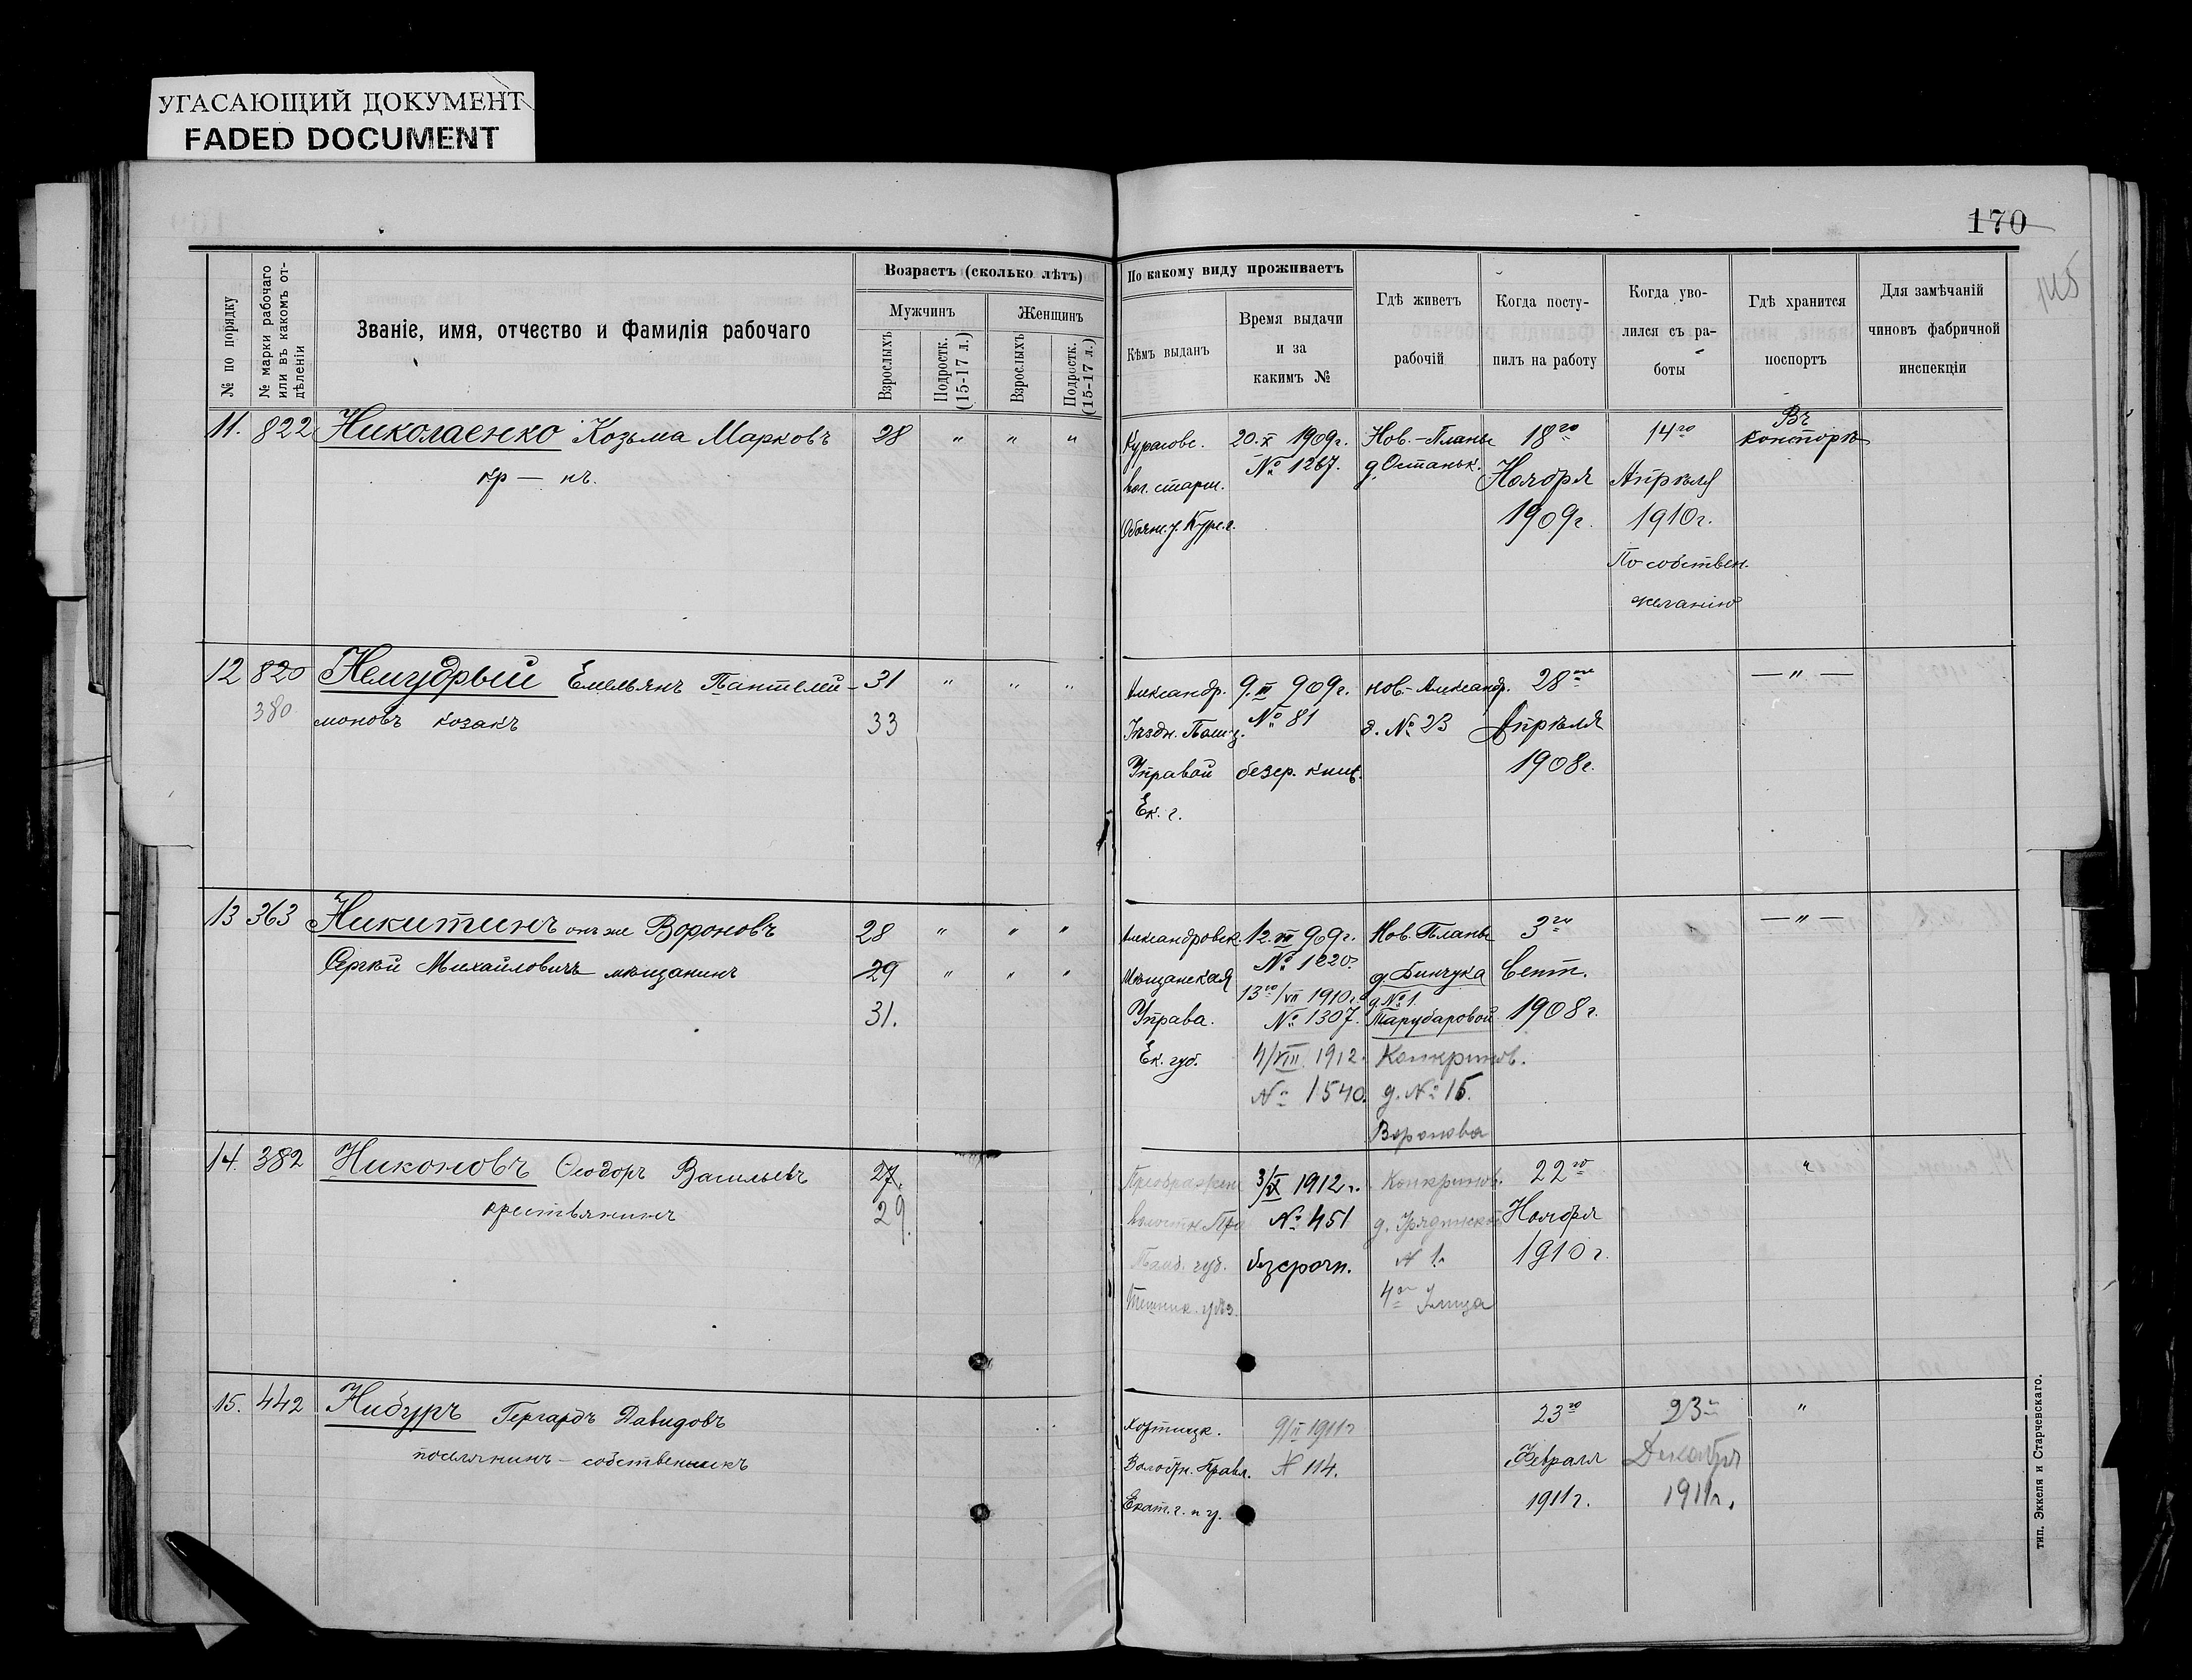 УГАСАЮЩИЙ ДОКУМЕНТ
FADED DOCUMENT
170
№ по порядку
№ марки рабочаго
или въ какомъ от-
дѣленіи
Званіе, имя, отчество и фамилія рабочаго
Возрастъ (сколько лѣтъ)
Мужчинъ
Женщинъ
Взрослыхъ
Подростк.
(15-17 л.)
Взрослыхъ
Подростк.
(15-17 л.)
По какому виду проживаетъ
Кѣмъ выданъ
Время выдачи
и за
какимъ №
Гдѣ живетъ
рабочій
Когда посту-
пилъ на работу
Когда уво-
лился съ ра-
боты
Гдѣ хранится
поспортъ
Для замѣчаній
чиновъ фабричной
инспекціи
11. 822 Николаенко Козьма Марковъ 28 " " "
кр — нъ.
вол. старш.
Обоян. у. Курс. г.
20. X 1909 г.
№ 1267.
Нов.-Планъ
д. Останьк.
18го
Ноября
1909 г.
14го
Апрѣля
1910 г.
По собствен.
желанію
Въ
конторѣ
12 820 Немудрый Емельянъ Пантелей- 31 " " "
380 моновъ козакъ 33
Александр.
Управой
Ек. г.
9. III 909 г.
№ 81
безср. книж.
нов.-Александр.
д. № 23
28го
Апрѣля
1908 г.
— " —
13 363 Никитинъ онъ же Вороновъ 28 " " "
Сергѣй Михайловичъ мѣщанинъ 29 " " "
31.
Александровск.
Мѣщанская
Управа.
Ек. губ.
12. VII 909 г.
№ 1220.
13го/VII 1910 г.
№ 1307.
4/VIII 1912.
№ 1540.
Нов. Планъ
д. Бинчука
д. № 1.
Тарубаровой
Канкринов.
д. № 15.
Воронова
3го
Сент.
1908 г.
— " —
14. 382 Никоновъ Ѳеодоръ Васильевъ 27.
крестьянинъ 29.
Преображен
Волостн. Пра
Тамб. губ.
3/IX 1912 г.
№ 451
безсрочн.
Канкринов.
№ 1.
4ая Улица
22го
Ноября
1910 г.
"
15. 442 Нибуръ Гергардъ Давидовъ
поселянинъ - собственникъ
Хортицк.
Волостн. Правл.
Екат. г. и у.
9/II 1911 г
№ 114.
23го
Февраля
1911 г.
23го
Декабря
1911 г.
"
тип. Эккеля и Старчевскаго.